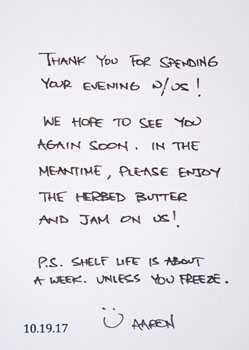 THANK YOU FOR SPENDING
YOUR EVENING W/US!
WE HOPE TO SEE YOU
AGAIN SOON. IN THE
MEANTIME, PLEASE ENJOY
THE HERBED BUTTER
AND JAM ON US!
P.S. SHELF LIFE IS ABOUT
A WEEK. UNLESS YOU FREEZE.
AARON
10.19.17